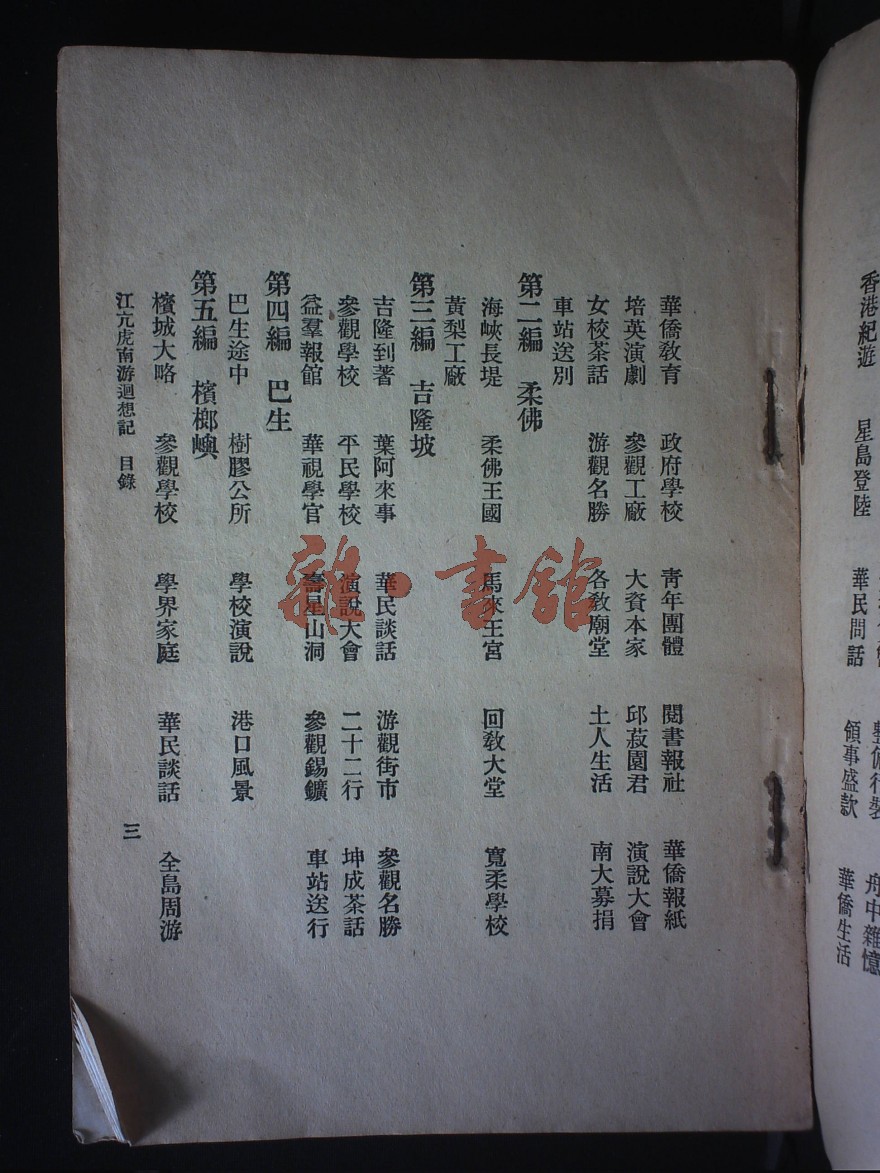 香港紀遊 星島登陸 華民問話 領事盛款 華僑生活
華僑教育 政府學校 青年團體 閱書報社 華僑報紙
培英演劇 參觀工廠 大資本家 邱菽園君 演說大會
女校茶話 游觀名勝 各教廟堂 土人生活 南大募捐
車站送別
第二編 柔佛
海峽長堤 柔佛王國 馬來王宮 回教大堂 寬柔學校
黃梨工廠
第三編 吉隆坡
吉隆到著 葉阿來事 華民談話 游觀街市 參觀名勝
參觀學校 平民學校 演說大會 二十二行 坤成茶話
益羣報館 華視學官 壽星山洞 參觀錫鑛 車站送行
第四編 巴生
巴生途中 樹膠公所 學校演說 港口風景
第五編 檳榔嶼
檳城大略 參觀學校 學界家庭 華民談話 全島周游
江亢虎南游迴想記 目錄 三
雜·書館